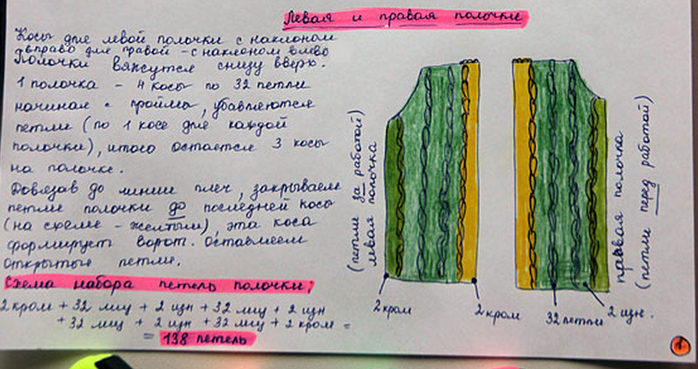 Левая и правая полочки
Косы для левой полочки с наклоном
вправо для правой - с наклоном влево
Полочки вяжутся снизу вверх.
1 полочка - 4 косы по 32 петли
начиная с проймы, убавляются
петли (по 1 косе для каждой
полочки), итого остается 3 косы
на полочке.
Довязав до линии плеч, закрываем
петли полочки до последней косы
(на схеме - желтым), эта коса
формирует ворот. Оставляем
открытые петли.
Схема набора петель полочки:
2 кром + 32 лиц + 2 изн + 32 лиц + 2 изн
+ 32 лиц + 2 изн + 32 лиц + 2 кром =
= 138 петель
(петли за работой)
левая полочка
правая полочка
(петли перед работой)
2 кром
2 кром
32 петли
2 изн.
1